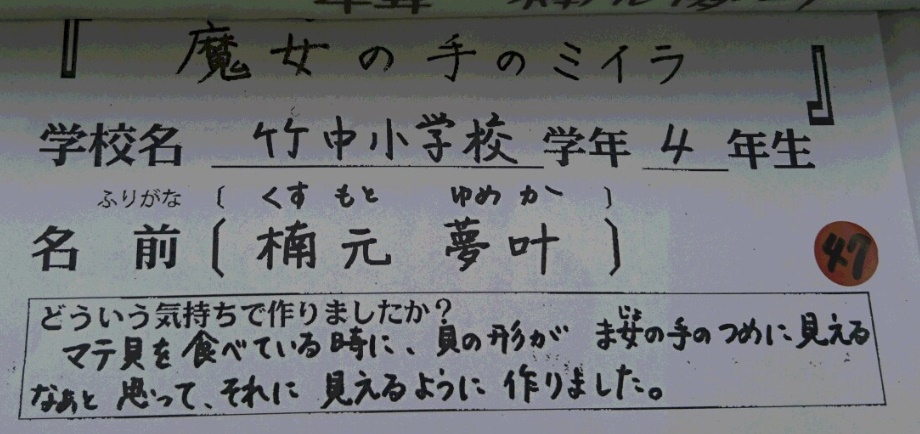 『 魔女の手のミイラ 』
学校名 竹中小学校 学年 4 年生
ふりがな 〔 くすもと ゆめか 〕
名前 〔 楠元 夢叶 〕
47
どういう気持ちで作りましたか？
じょ
マテ貝を食べている時に、貝の形が ま女の手のつめに見える
なあと思って、それに見えるように作りました。